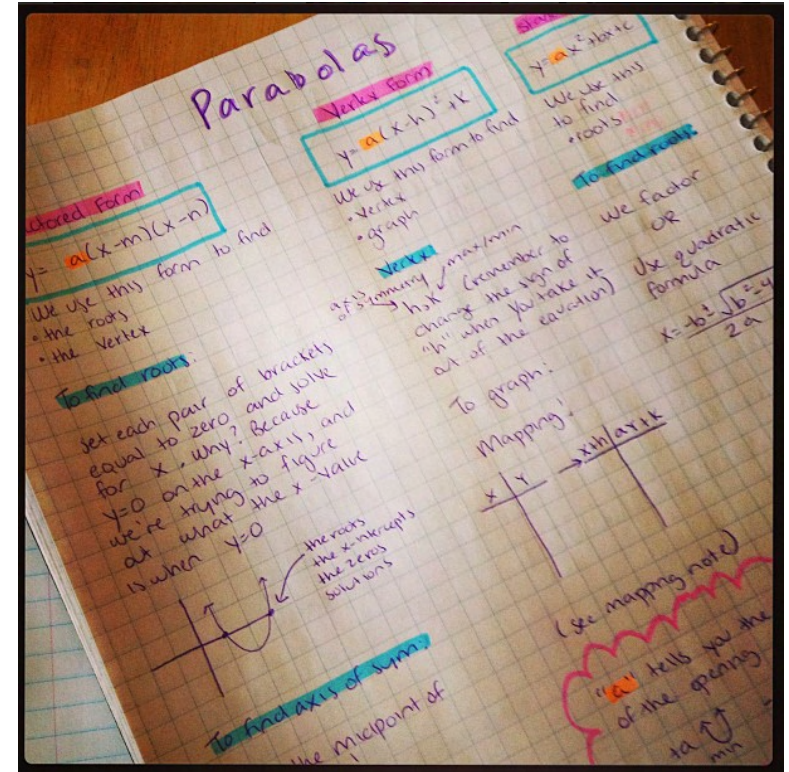 Parabolas
Factored Form
y= a(x-m)(x-n)
We use this form to find
• the roots
• the vertex
To find roots:
set each pair of brackets
equal to zero and solve
for x. Why? Because
y=0 on the x-axis, and
we're trying to figure
out what the x-value
is when y=0
the roots
the x-intercepts
the zeros
solutions
To find axis of sym:
the midpoint of
Vertex Form
y= a(x-h)² +k
We use this form to find
• vertex
• graph
Vertex
axis
of symmetry
max/min
h,k (remember to
change the sign of
"h" when you take it
out of the equation)
To graph:
Mapping:
x y → x+h ay+k
(see mapping note)
y= ax²+bx+c
We use this
to find
• roots
To find roots:
We factor
OR
Use quadratic
formula
x= -b± √b²-4
2a
"a" tells you the
of the opening
+a
min